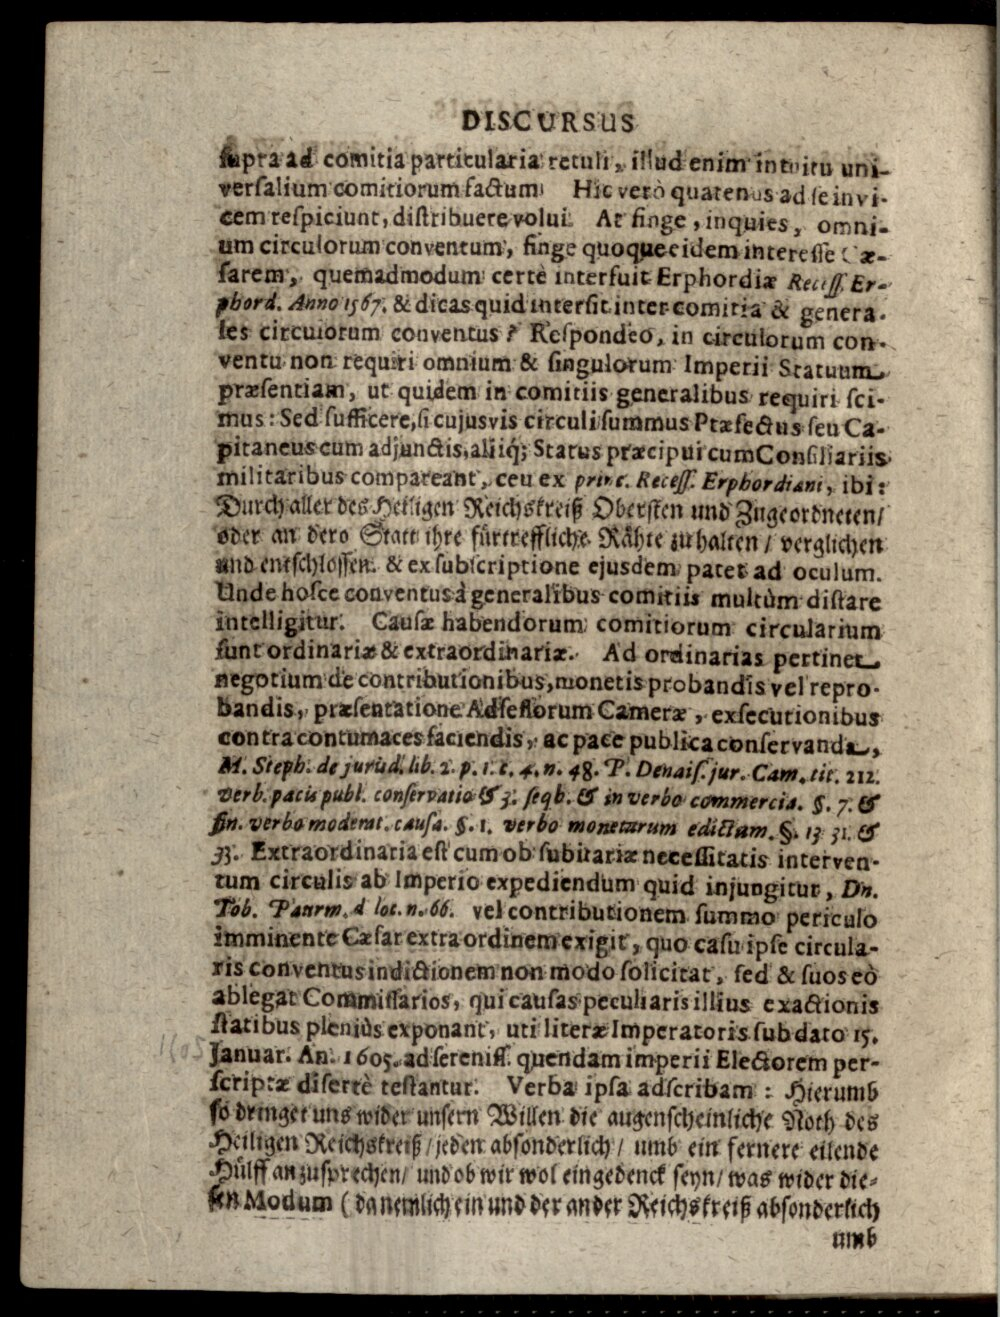 DISCURSUS
supra ad comitia particularia retuli, illud enim intuitu uni-
versalium comitiorum factum. Hic verò quatenus ad se invi-
cem respiciunt, distribuere volui. At finge, inquies, omni-
um circulorum conventum, finge quoque eidem interesse Cæ-
sarem, quemadmodum certè interfuit Erphordiæ Recess. Er-
phord. Anno 1567. & dicas quid intersit inter comitia & genera-
les circulorum conventus? Respondeo, in circulorum con-
ventu non requiri omnium & singulorum Imperii Statuum
præsentiam, ut quidem in comitiis generalibus requiri sci-
mus: Sed sufficere, si cujusvis circuli summus Præfectus seu Ca-
pitaneus cum adjunctis, aliiq; Status præcipui cum Consiliariis
militaribus compareant, ceu ex princ. Recess. Erphordiani, ibi:
Durch aller des Heiligen Reichskreiß Obersten und Zugeordneten/
oder an dero Statt ihre fürtreffliche Rähte zu halten/ verglichen
und entschlossen. & ex subscriptione ejusdem patet ad oculum.
Unde hosce conventus à generalibus comitiis multùm distare
intelligitur. Causæ habendorum comitiorum circularium
sunt ordinariæ & extraordinariæ. Ad ordinarias pertinet
negotium de contributionibus, monetis probandis vel repro-
bandis, præsentatione Adsessorum Cameræ, exsecutionibus
contra contumaces faciendis, ac pace publica conservanda,
M. Steph. de jurisd. lib. 2. p. 1. c. 4. n. 48. P. Denais. jur. Cam. tit. 212.
verb. pacis publ. conservatio & 3. seqb. & in verbo commercia. §. 7. &
fin. verbo moderat. causa. §. 1. verbo monetarum edictum. §. 13 31. &
33. Extraordinaria est cum ob subitariæ necessitatis interven-
tum circulis ab Imperio expediendum quid injungitur, Dn.
Tob. Paurm. d. loc. n. 66. vel contributionem summo periculo
imminente Cæsar extra ordinem exigit, quo casu ipse circula-
ris conventus indictionem non modo solicitat, sed & suos eò
ablegat Commissarios, qui causas peculiaris illius exactionis
statibus pleniùs exponant, uti literæ Imperatoris sub dato 15.
Januar. An. 1605. ad sereniss. quendam imperii Electorem per-
scriptæ disertè testantur. Verba ipsa adscribam: Hierumb
so dringet uns wider unsern Willen die augenscheinliche Noth des
Heiligen Reichskreiß/ jeden absonderlich/ umb ein fernere eilende
Hülff anzusprechen/ und ob wir wol eingedenck seyn/ was wider die-
sen Modum (da nemlich ein und der ander Reichskreiß absonderlich
umb